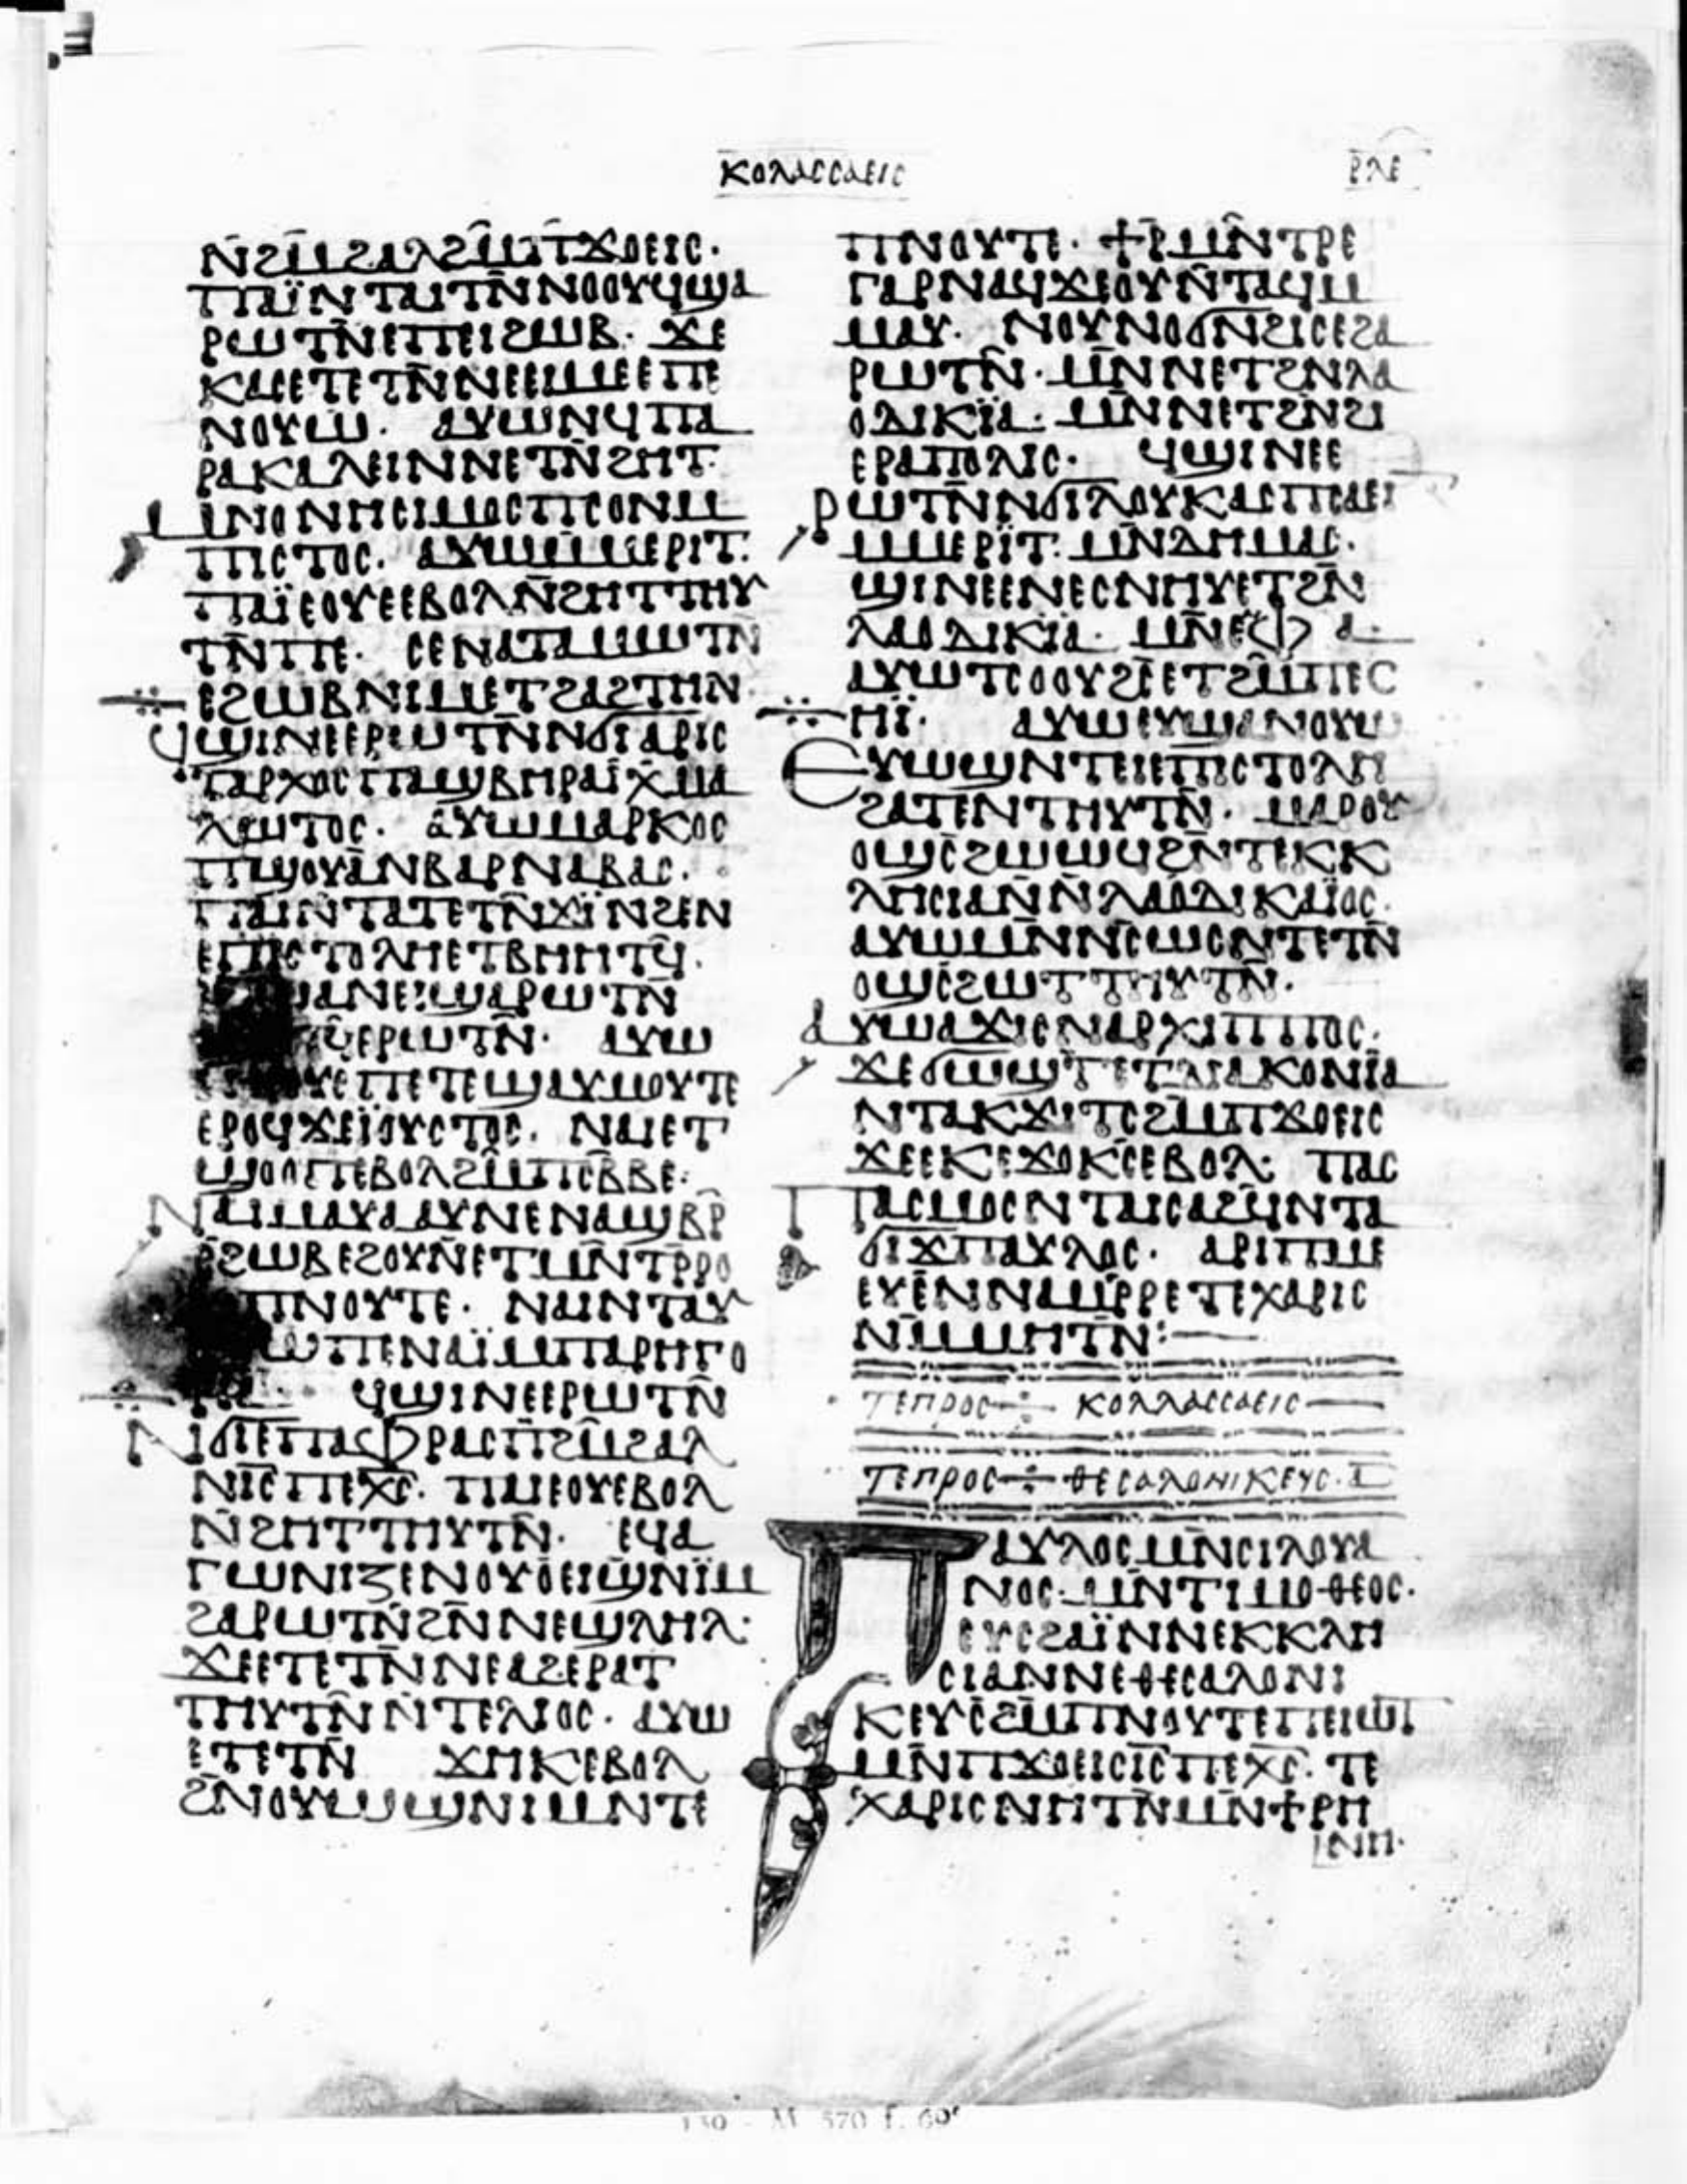 ⲕⲟⲗⲁⲥⲥⲁⲉⲓⲥ
ⲣⲗⲉ
ⲛ̄ϩⲙ̄ϩⲁⲗϩⲙ̄ⲡϫⲟⲉⲓⲥ·
ⲡⲁⲓ̈ⲛⲧⲁⲓⲧⲛ̄ⲛⲟⲟⲩϥϣⲁ
ⲣⲱⲧⲛ̄ⲉⲡⲉⲓϩⲱⲃ· ϫⲉ
ⲕⲁⲥⲉⲧⲉⲧⲛ̄ⲛⲉⲉⲓⲙⲉⲉⲡⲉ
ⲛⲟⲩⲱ· ⲁⲩⲱⲛϥⲡⲁ
ⲣⲁⲕⲁⲗⲉⲓⲛⲛⲉⲧⲛ̄ϩⲏⲧ·
ⲙⲛⲟⲛⲏⲥⲓⲙⲟⲥⲡⲥⲟⲛⲙ
ⲡⲓⲥⲧⲟⲥ· ⲁⲩⲱⲙ̄ⲙⲉⲣⲓⲧ·
ⲡⲁⲓ̈ⲉⲟⲩⲉⲉⲃⲟⲗⲛ̄ϩⲏⲧⲧⲏⲩ
ⲧⲛ̄ⲡⲉ· ⲥⲉⲛⲁⲧⲁⲙⲱⲧⲛ̄
ⲉϩⲱⲃⲛⲓⲙⲉⲧϩⲁϩⲧⲏⲛ·
ϥϣⲓⲛⲉⲉⲣⲱⲧⲛ̄ⲛϭⲓⲁⲣⲓⲥ
ⲧⲁⲣⲭⲟⲥⲡⲁϣⲃⲏⲣⲁⲓ̈ⲭⲙⲁ
ⲗⲱⲧⲟⲥ· ⲁⲩⲱⲙⲁⲣⲕⲟⲥ
ⲡϣⲟⲩⲁ̄ⲛⲃⲁⲣⲛⲁⲃⲁⲥ·
ⲡⲁⲓⲛⲧⲁⲧⲉⲧⲛ̄ϫⲓ̈ⲛϩⲉⲛ
ⲉⲡⲓⲥⲧⲟⲗⲏⲉⲧⲃⲏⲏⲧϥ̄·
ⲁⲛⲉⲓϣⲁⲣⲱⲧⲛ̄
ⲉⲣⲱⲧⲛ̄· ⲁⲩⲱ
ⲡⲉⲧⲉϣⲁⲩⲙⲟⲩⲧⲉ
ⲉⲣⲟϥϫⲉⲓ̈ⲟⲩⲥⲧⲟⲥ· ⲛⲁⲓⲉⲧ
ϣⲟⲟⲡⲉⲃⲟⲗϩⲙ̄ⲡⲥⲃ̄ⲃⲉ·
ⲛⲁⲓⲙⲁⲩⲁⲁⲩⲛⲉⲛⲁϣⲃⲣ̄
ⲣ̄ϩⲱⲃⲉϩⲟⲩⲛ̄ⲉⲧⲙⲛ̄ⲧⲣ̄ⲣⲟ
ⲡⲛⲟⲩⲧⲉ· ⲛⲁⲓⲛⲧⲁⲩ
ⲱⲡⲉⲛⲁⲓ̈ⲙⲡⲁⲣⲏⲅⲟ
ϥϣⲓⲛⲉⲉⲣⲱⲧⲛ̄
ⲛϭⲓⲉⲡⲁⲫⲣⲁⲥⲡϩⲙ̄ϩⲁⲗ
ⲛⲓ̄ⲥⲡⲉⲭ̄ⲥ̄· ⲡⲓⲙⲉⲟⲩⲉⲃⲟⲗ
ⲛ̄ϩⲏⲧⲧⲏⲩⲧⲛ̄· ⲉϥⲁ
ⲅⲱⲛⲓⲍⲉⲛⲟⲩⲟⲉⲓϣⲛⲓ̈ⲙ
ϩⲁⲣⲱⲧⲛ̄ϩⲛ̄ⲛⲉϣⲗⲏⲗ·
ϫⲉⲉⲧⲉⲧⲛ̄ⲛⲉⲁϩⲉⲣⲁⲧ
ⲧⲏⲩⲧⲛ̄ⲛ̄ⲧⲉⲗⲓⲟⲥ· ⲁⲩⲱ
ⲉⲧⲉⲧⲛ̄ ϫⲏⲕⲉⲃⲟⲗ
ϩⲛ̄ⲟⲩⲱϣⲛⲓⲙⲛⲧⲉ
ⲡⲛⲟⲩⲧⲉ· ϯⲣ̄ⲙⲛ̄ⲧⲣⲉ
ⲅⲁⲣⲛⲁϥϫⲉⲟⲩⲛ̄ⲧⲁϥⲙ
ⲙⲁⲩ· ⲛⲟⲩⲛⲟϭⲛϩⲓⲥⲉϩⲁ
ⲣⲱⲧⲛ̄· ⲙⲛ̄ⲛⲉⲧϩⲛⲗⲁ
ⲟⲇⲓⲕⲓ̈ⲁ· ⲙⲛ̄ⲛⲉⲧϩⲛ̄ϩⲓ
ⲉⲣⲁⲡⲟⲗⲓⲥ· ϥϣⲓⲛⲉⲉ
ⲣⲱⲧⲛ̄ⲛϭⲓⲗⲟⲩⲕⲁⲥⲡⲥⲁⲉⲓ
ⲙⲙⲉⲣⲓ̈ⲧ· ⲙⲛ̄ⲇⲏⲙⲁⲥ·
ϣⲓⲛⲉⲉⲛⲉⲥⲛⲏⲩⲉⲧϩⲛ̄
ⲗⲁⲟⲇⲓⲕⲓ̈ⲁ· ⲙⲛ̄ⲛⲉⲙⲫⲁ·
ⲁⲩⲱⲧⲥⲟⲟⲩϩⲉⲧϩⲙ̄ⲡⲉⲥ
ⲏⲓ̈· ⲁⲩⲱⲉⲩϣⲁⲛⲟⲩⲱ
ⲉⲩⲱϣⲛⲧⲉⲓⲉⲡⲓⲥⲧⲟⲗⲏ
ϩⲁⲧⲉⲛⲧⲏⲩⲧⲛ̄· ⲙⲁⲣⲟⲩ
ⲟϣⲥ̄ϩⲱⲱϥϩⲛ̄ⲧⲉⲕⲕ
ⲗⲏⲥⲓⲁⲛ̄ⲛ̄ⲗⲁⲟⲇⲓⲕⲁⲓ̈ⲟⲥ·
ⲁⲩⲱⲙⲛ̄ⲛⲥⲱⲥⲛⲧⲉⲧⲛ̄
ⲟϣⲥ̄ϩⲱⲧⲧⲏⲩⲧⲛ̄·
ⲁⲩⲱⲁϫⲓⲥⲛⲁⲣⲭⲓⲡⲡⲟⲥ·
ϫⲉϭⲱϣⲧ̄ⲉⲧⲇⲓⲁⲕⲟⲛⲓ̈ⲁ
ⲛⲧⲁⲕϫⲓⲧⲥϩⲙ̄ⲡϫⲟⲉⲓⲥ
ϫⲉⲉⲕⲉϫⲟⲕⲥ̄ⲉⲃⲟⲗ· ⲡⲁⲥ
ⲡⲁⲥⲙⲟⲥⲛⲧⲁⲓⲥⲁϩϥ̄ⲛⲧⲁ
ϭⲓϫⲡⲁⲩⲗⲟⲥ· ⲁⲣⲓⲡⲙⲉ
ⲉⲩⲉ̄ⲛⲛⲁⲙⲣ̄ⲣⲉⲧⲉⲭⲁⲣⲓⲥ
ⲛⲙ̄ⲙⲏⲧⲛ̄:—
ⲧⲉⲡⲣⲟⲥ÷ ⲕⲟⲗⲗⲁⲥⲥⲁⲉⲓⲥ—
ⲧⲉⲡⲣⲟⲥ÷ ⲑⲉⲥⲁⲗⲟⲛⲓⲕⲉⲩⲥ·ⲁ̄
ⲡⲁⲩⲗⲟⲥⲙⲛ̄ⲥⲓⲗⲟⲩⲁ
ⲛⲟⲥ·ⲙⲛ̄ⲧⲓⲙⲟⲑⲉⲟⲥ·
ⲉⲩⲥϩⲁⲓ̈ⲛⲛⲉⲕⲕⲗⲏ
ⲥⲓⲁⲛⲛⲉⲑⲉⲥⲁⲗⲟⲛⲓ
ⲕⲉⲩⲥ̄ϩⲙ̄ⲡⲛⲟⲩⲧⲉⲡⲉⲓⲱⲧ
ⲙⲛ̄ⲡϫⲟⲉⲓⲥⲓ̄ⲥ̄ⲡⲉⲭ̄ⲥ̄· ⲧⲉ
ⲭⲁⲣⲓⲥⲛⲏⲧⲛ̄ⲙⲛ̄ϯⲣⲏ
ⲛⲏ·
139 - M 570 f. 69ʳ